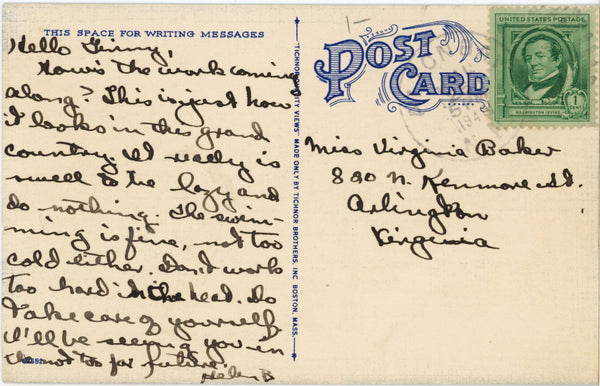 THIS SPACE FOR WRITING MESSAGES
Hello Ginny,
How's the work coming
along? This is just how
I looks in this grand
country. It really is
swell to be lazy and
do nothing. The swim-
ming is fine, not too
cold either. Don't work
too hard in the head. Do
take care of yourself.
I'll be seeing you in
the not too far future.
Helen B
TICHNOR QUALITY VIEWS MADE ONLY BY TICHNOR BROTHERS, INC. BOSTON, MASS.
POST
CARD
UNITED STATES POSTAGE
1
CENT
WASHINGTON IRVING
Miss Virginia Baker
820 N. Kenmore St.
Arlington
Virginia